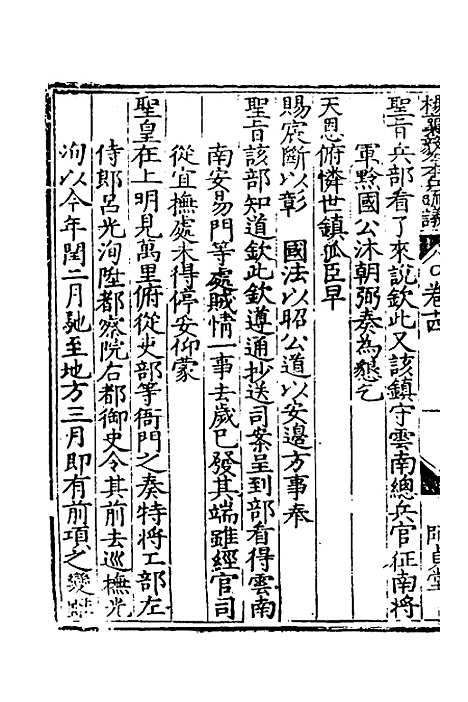 楊襄毅公本兵疏議 卷十四 一
聖旨兵部看了來說欽此又該鎮守雲南總兵官征南將
軍黔國公沐朝弼奏為懇乞
天恩俯憐世鎮孤臣早
賜宸斷以彰 國法以昭公道以安邊方事奉
聖旨該部知道欽此欽遵通抄送司案呈到部看得雲南
南安易門等處賊情一事去歲已發其端雖經官司
從宜撫處未得停妥仰蒙
聖皇在上明見萬里俯從吏部等衙門之奏特將工部左
侍郎呂光洵陞都察院右都御史令其前去巡撫光
洵以今年閏二月馳至地方三月即有前項之變雖